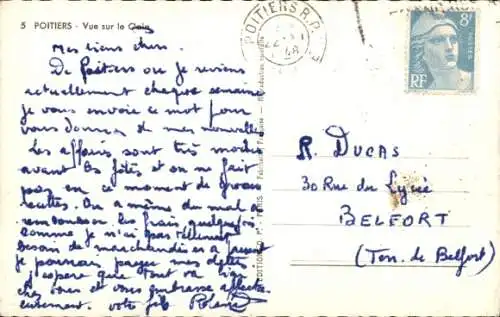 5 POITIERS - Vue sur le
Mes biens chers.
De Poitiers ou je reviens
actuellement chaque semaine
je vous envoie ce mot pour
vous donner de mes nouvelles
Les affaires sont très mortes
avant les fêtes et on ne fait
pas en ce moment de grosses
recettes. On a même du mal a
rembourser les frais quelquefois
comme je n'ai pas tellement
besoin de marchandises a present
je pourrais payer mes dettes
j'espere que tout va bien
chez vous et vous embrasse affectu-
eusement. votre fils Roland
POITIERS R.P.
48
8F
POSTES
RF
R. DUCAS
30 Rue du Lycée
BELFORT
(Terr. de Belfort)